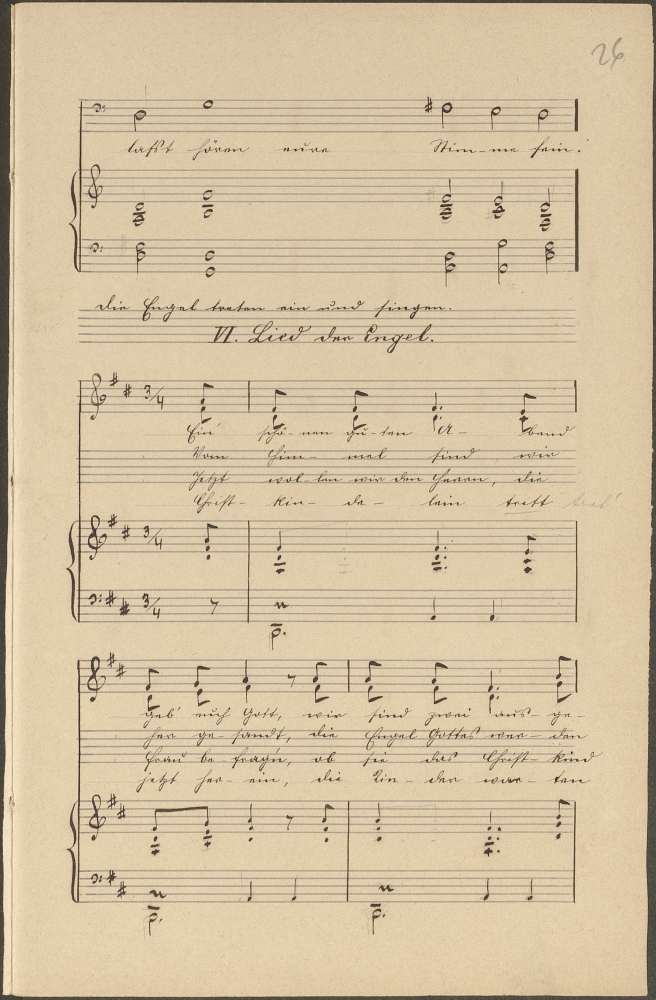 26
lasst hören eure Stim-me fein!
Die Engel treten ein und singen.
VI. Lied der Engel.
3/4
Ein' schö-nen gu-ten A-bend
Vom Him-mel sind wir
Jetzt wol-len wir den Herrn, die
Christ-kin-de-lein trett tret'
3/4
3/4
geb' euch Gott, wir sind zwei aus-ge-
her ge-sandt, die Engel Gottes wer-den
Frau be-frag'n, ob sie das Christ-kind
jetzt her-ein, die Kin-der war-ten